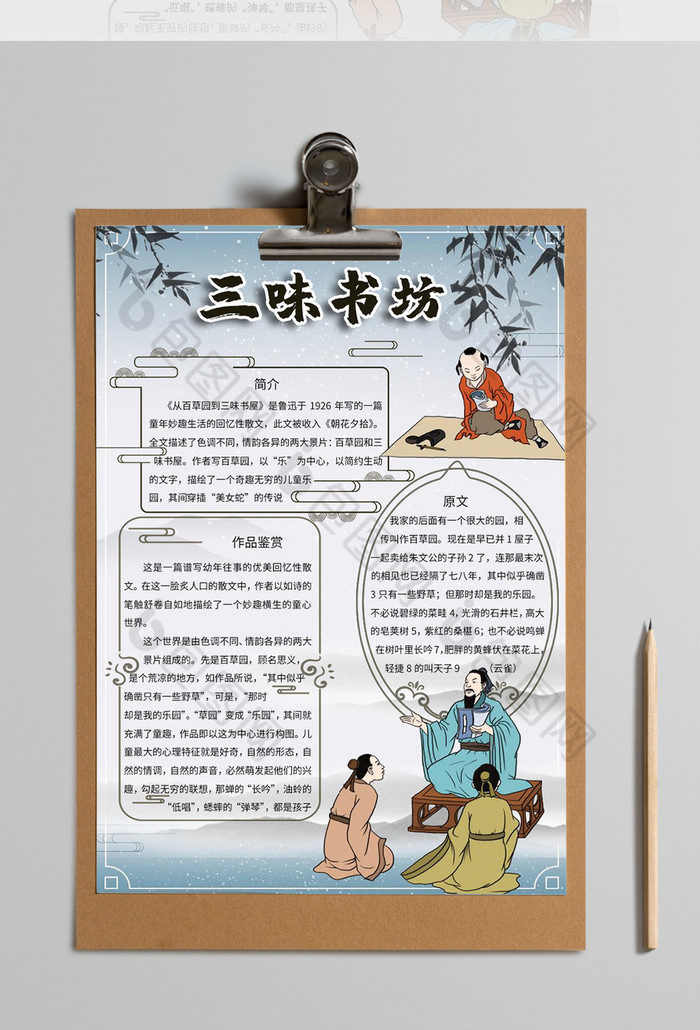 三味书坊
简介
《从百草园到三味书屋》是鲁迅于 1926 年写的一篇
童年妙趣生活的回忆性散文，此文被收入《朝花夕拾》。
全文描述了色调不同，情韵各异的两大景片：百草园和三
味书屋。作者写百草园，以“乐”为中心，以简约生动
的文字，描绘了一个奇趣无穷的儿童乐
园，其间穿插“美女蛇”的传说
原文
我家的后面有一个很大的园，相
传叫作百草园。现在是早已并 1 屋子
一起卖给朱文公的子孙 2 了，连那最末次
的相见也已经隔了七八年，其中似乎确凿
3 只有一些野草；但那时却是我的乐园。
不必说碧绿的菜畦 4，光滑的石井栏，高大
的皂荚树 5，紫红的桑椹 6；也不必说鸣蝉
在树叶里长吟 7，肥胖的黄蜂伏在菜花上，
轻捷 8 的叫天子 9 （云雀）
作品鉴赏
这是一篇谱写幼年往事的优美回忆性散
文。在这一脍炙人口的散文中，作者以如诗的
笔触舒卷自如地描绘了一个妙趣横生的童心
世界。
这个世界是由色调不同、情韵各异的两大
景片组成的。先是百草园，顾名思义，
是个荒凉的地方，如作品所说，“其中似乎
确凿只有一些野草”，可是，“那时
却是我的乐园”。“草园”变成“乐园”，其间就
充满了童趣，作品即以这为中心进行构图。儿
童最大的心理特征就是好奇，自然的形态，自
然的情调，自然的声音，必然萌发起他们的兴
趣，勾起无穷的联想，那蝉的“长吟”，油蛉的
“低唱”，蟋蟀的“弹琴”，都是孩子